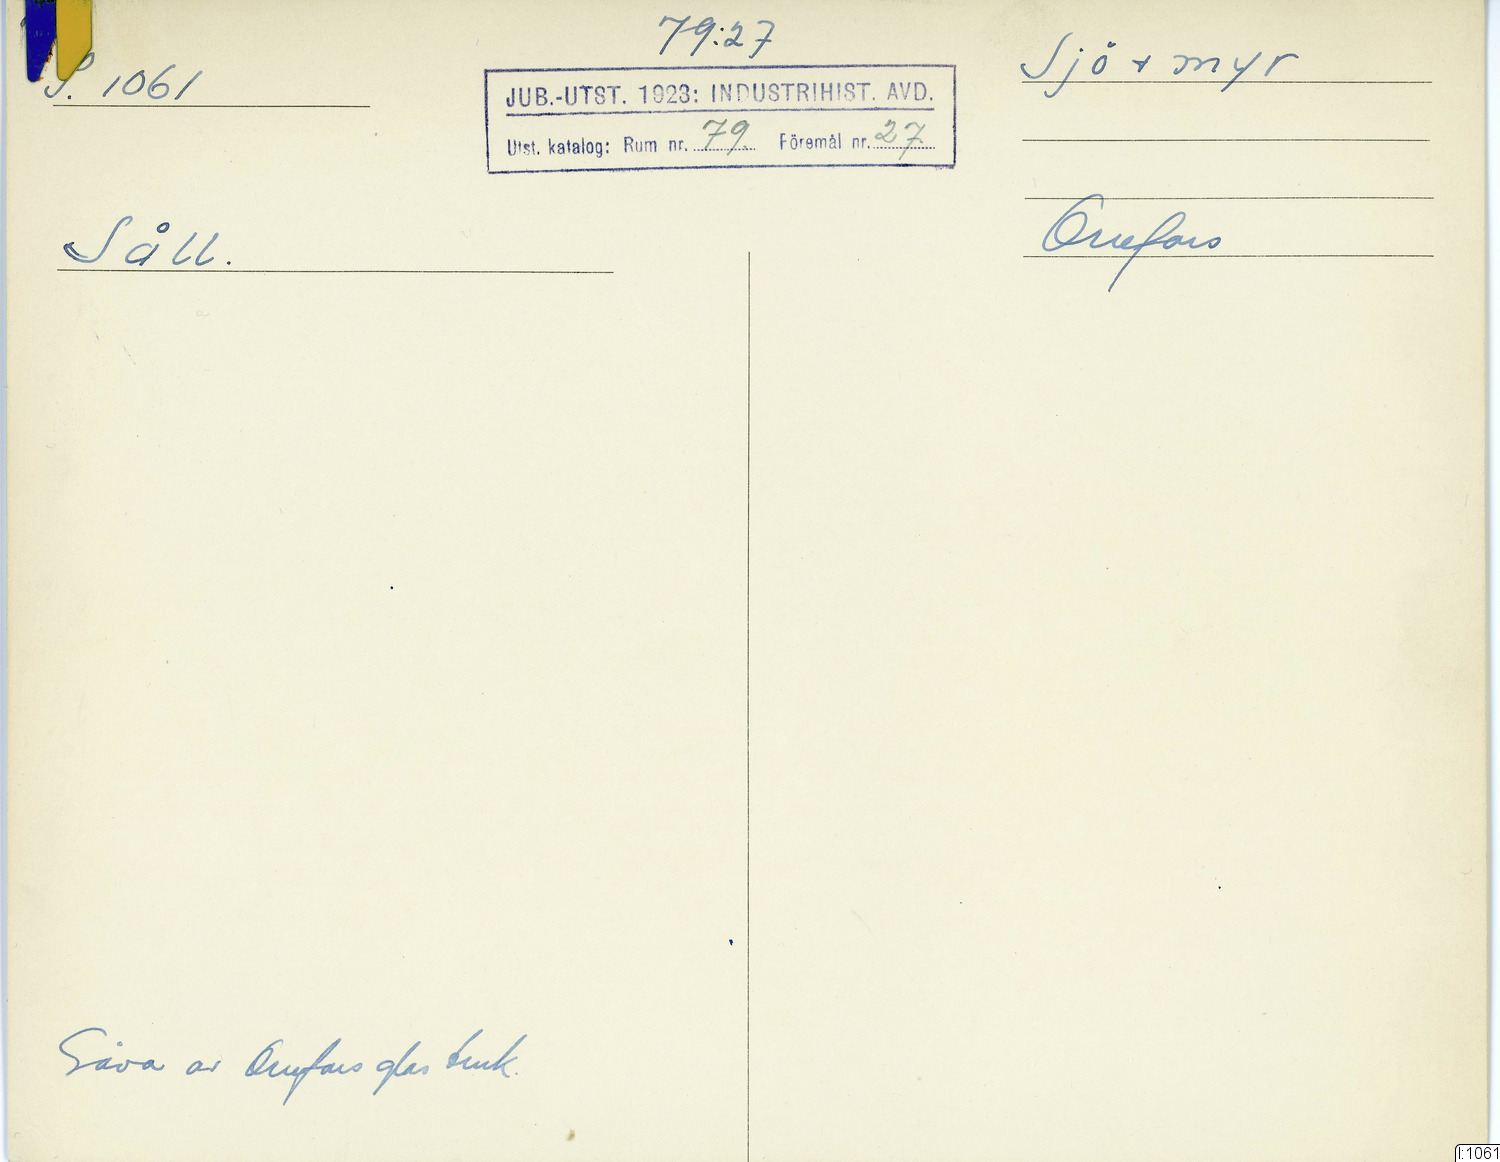 79:27
S. 1061
Sjö & myr
JUB.-UTST. 1923: INDUSTRIHIST. AVD.
Utst. katalog: Rum nr. 79 Föremål nr. 27
Såll.
Orrefors
Gåva av Orrefors glasbruk.
I:1061